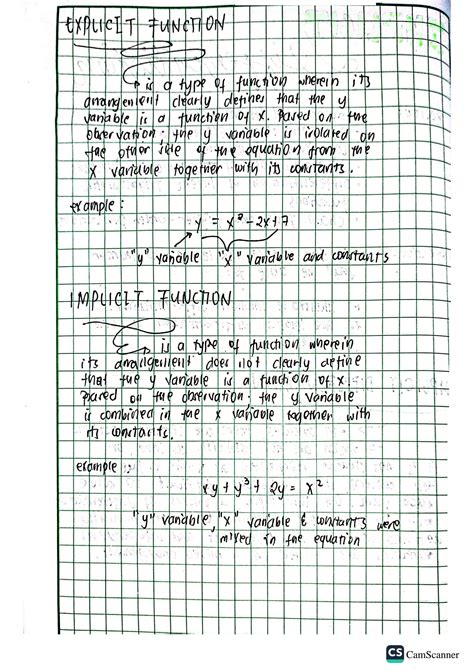 EXPLICIT FUNCTION
is a type of function wherein its
arrangement clearly defines that the y
variable is a function of x. Based on the
observation, the y variable is isolated on
the other side of the equation from the
x variable together with its constants.
example:
y = x² - 2x + 7
"y" variable "x" variable and constants
IMPLICIT FUNCTION
is a type of function wherein
its arrangement does not clearly define
that the y variable is a function of x.
Based on the observation, the y variable
is combined in the x variable together with
its constants.
example:
xy + y³ + 2y = x²
"y" variable, "x" variable & constants were
mixed in the equation
CS CamScanner